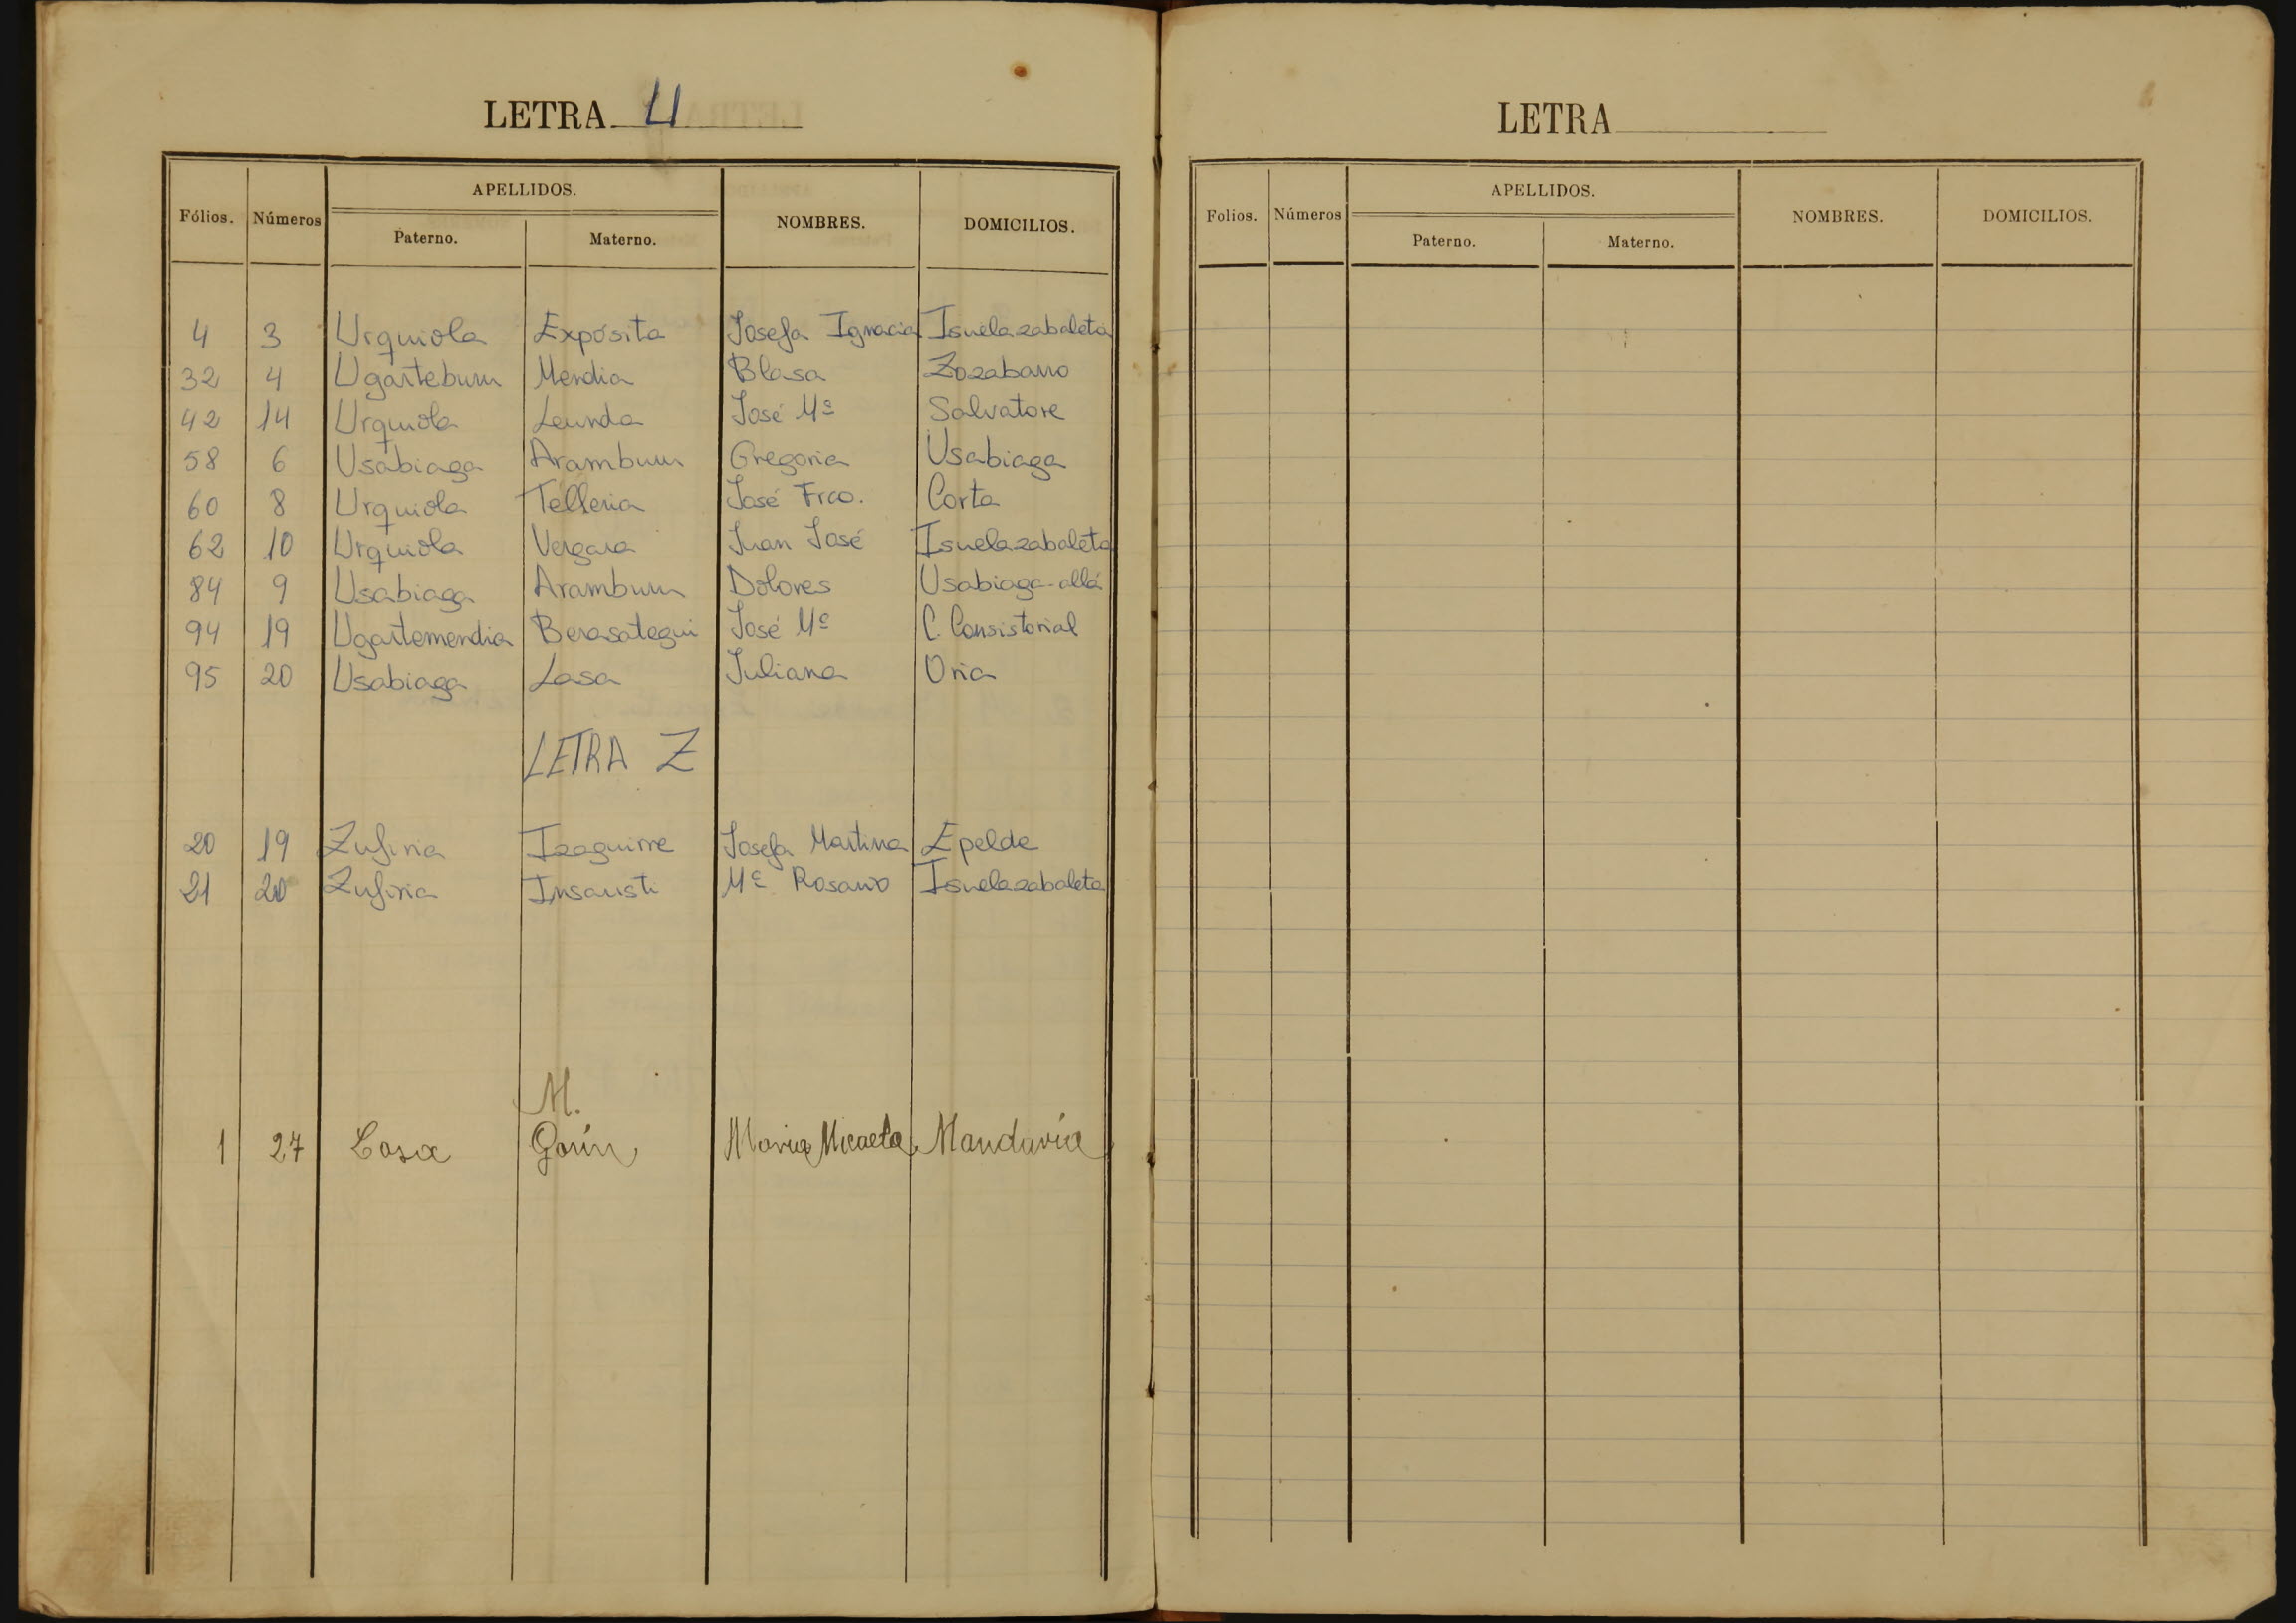 LETRA U
Fólios. Números APELLIDOS. Paterno. Materno. NOMBRES. DOMICILIOS.
4 3 Urquiola Expósita Josefa Ignacia Isuelazabaleta
32 4 Ugarteburu Mendia Blasa Zozabarro
42 14 Urquiola Leunda José Mª Salvatore
58 6 Usabiaga Aramburu Gregoria Usabiaga
60 8 Urquiola Telleria José Frco. Corta
62 10 Urquiola Vergara Juan José Isuelazabaleta
84 9 Usabiaga Aramburu Dolores Usabiaga-allá
94 19 Ugartemendia Berasategui José Mª C. Consistorial
95 20 Usabiaga Lasa Juliana Oria
LETRA Z
20 19 Zufiria Izaguirre Josefa Martina Epelde
21 20 Zufiria Insausti Mª Rosario Isuelazabaleta
M.
1 27 Lasa Gorin Maria Micaela
LETRA
Folios. Números APELLIDOS. Paterno. Materno. NOMBRES. DOMICILIOS.